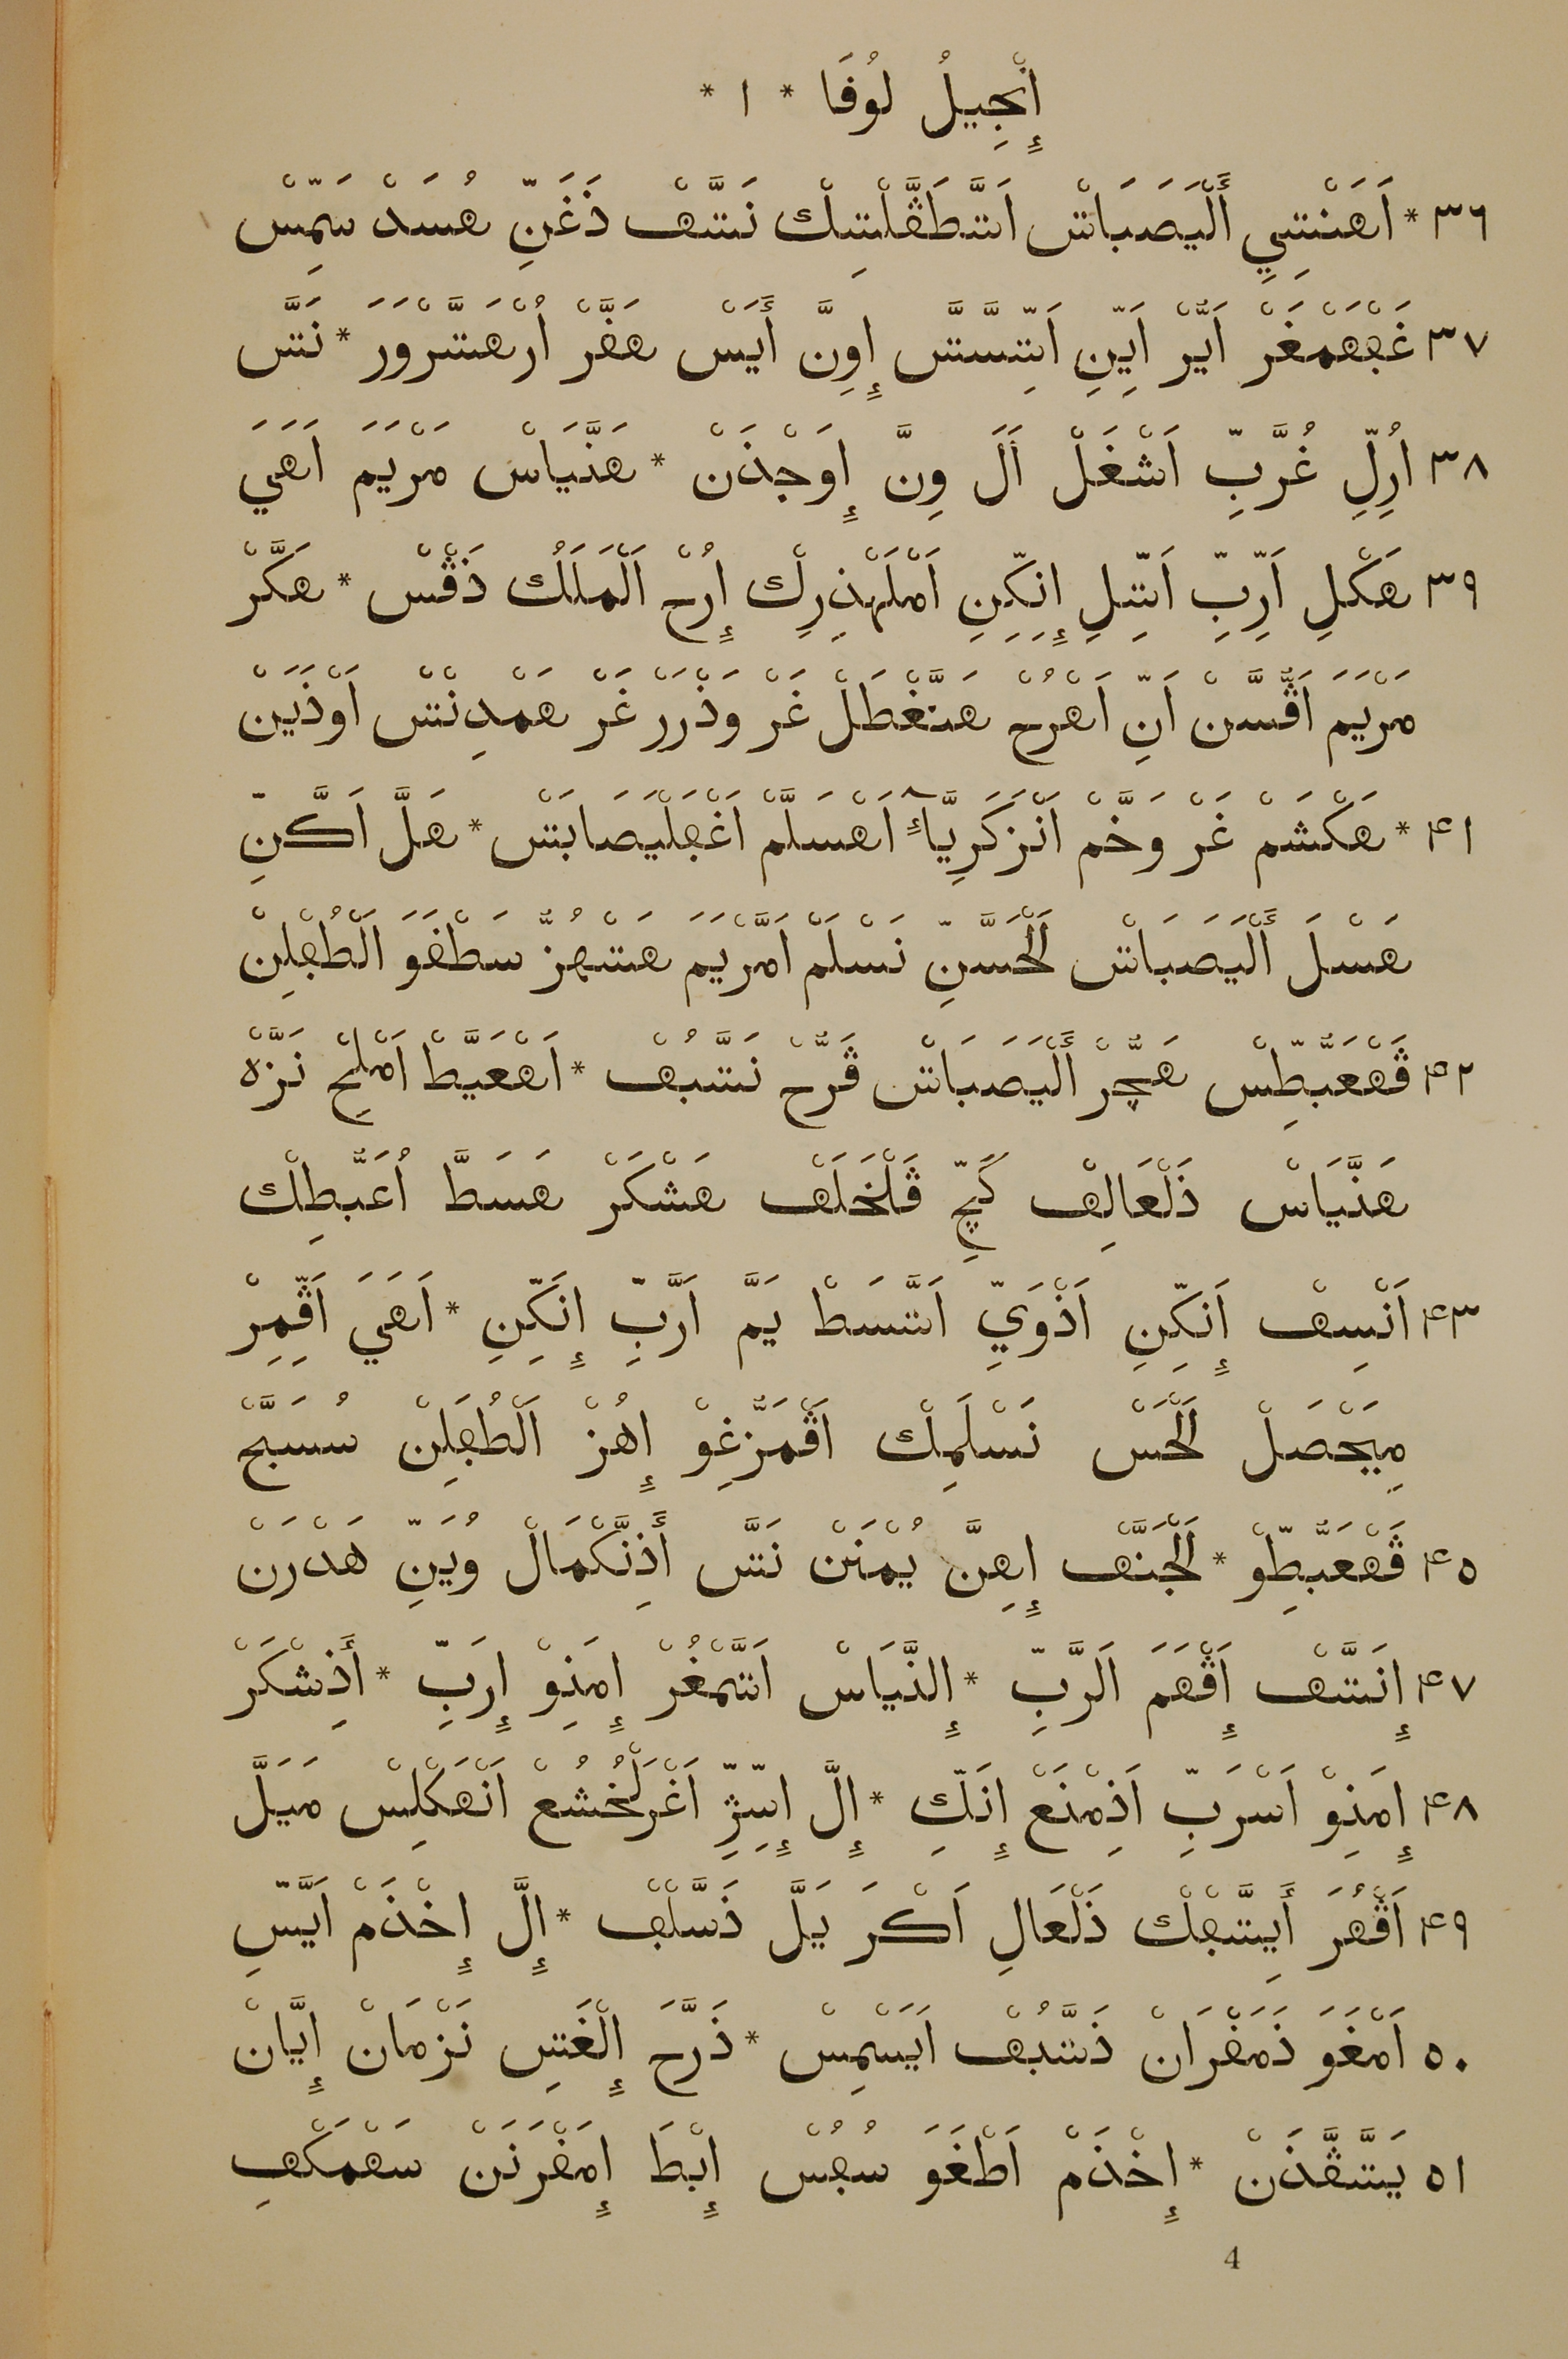 إِنْجِيلُ لُوفَا * ١ *
٣٦ * اَهَنْتِيِ أَلْيَصَبَاتْ اَتَّطَڢَّلْتِكْ نَتَّفْ ذَغَنِّ هُسَدْ سَمِّسْ
٣٧ غَبْهَمْغَرْ اَيَّرْ اَيِّنِ اَتِّسَّتَّسْ إِوِنَّ أَيَسْ هَفَّرْ اُرْهَتَّرْوَرَ * نَتَّسْ
٣٨ اُرِلِّ غُرَّبِّ اَشْغَلْ اَلَ وِنَّ إِوَجْذَنْ * هَنَّيَاسْ مَرْيَمَ اَهَيَ
٣٩ هَكْلِ اَرِّبِّ اَتِّلِ إِنِكِّنِ اَمْلَهْذِرِكْ إِرُحْ اَلْمَلَكُ ذَڢْسْ * هَكَّرْ
مَرْيَمَ اَڢُّسَّنْ اَنِّ اَهْرُحْ هَتَّغْطَلْ غَرْ وَذْرَرْ غَرْ هَمْدِنْتْ اَوْذَيَنْ
٤١ * هَكْشَمْ غَرْ وَخَّمْ اَنْزَكَرِيَّآءِ اَهْسَلَّمْ اَغْفَلْيَصَابَتْ * هَلَّ اَكَّنِّ
هَسْلَ أَلْيَصَبَاتْ لَلْحَسَّنِّ نَسْلَمْ اَمَّرْيَمَ هَتْهُزُّ سَطْفَوَ اَلْطُفْلِنْ
٤٢ ڢَفْعَبُّطِّسْ هَچُّرْ أَلْيَصَبَاتْ ڢَرُّحْ نَتَّبُفْ * اَهْعَيَّطْ اَمْلِحْ نَزَّهْ
هَنَّيَاسْ ذَلْعَالِفْ كَچِّ ڢَلْخَلَفْ هَشْكَرْ هَسَطَّ اُعَبُّطِكْ
٤٣ اَنْسِفْ إَنِكِّنِ اَذْوَيِّ اَتَّسَطْ يَمَّ اَرَّبِّ إِنَكِّنِ * اَهَيَ اَڢِّمِرْ
مِيَحْصَلْ لَلْحَسْ نَسْلَمِكْ اَڢْمَزُّغِوْ إِهُزْ اَلْطُفَلِنْ سُسَبَّحْ
٤٥ ڢَفْعَبُّطِّوْ * لَلْجَنَّفْ إِهِنَّ يُمْنَنْ نَتَّسْ أَذِنَّكْمَالْ وُيَنِّ هَدْرَنْ
٤٧ إِنَتَّفْ إَڢْهَمَ اَلرَّبِّ * إِلنَّيَاسْ اَتَّمْغُرْ إِمَنِوْ إِرَبِّ * أَذِشْكَرْ
٤٨ إِمَنِوْ اَسْرَبِّ اَذِمْنَعْ إِنَكِّ * إِلَّ إِتِّرِّ اَغْرَلْخُشُعْ اَنْهَكْلِسْ مَيَلَّ
٤٩ اَڢْهُرَ أَيِتَّبْفِكْ ذَلْعَالِ اَكْرَ يَلَّ ذَسَّلْفْ * إِلَّ إِخْذَمْ اَيَّسِّ
٥٠ اَمْغَوَ ذَمَفْرَانْ ذَتَّبُفْ اَيَسْمِسْ * ذَرَّحَ إِلْغَتِسْ نَزْمَانْ إِيَّانْ
٥١ يَتَّڢَّذَنْ * إِخْذَمْ اَطْغَوَ سُفُسْ إِبْطَ إِمَفْرَنَنْ سَهْمَكْفِ
4